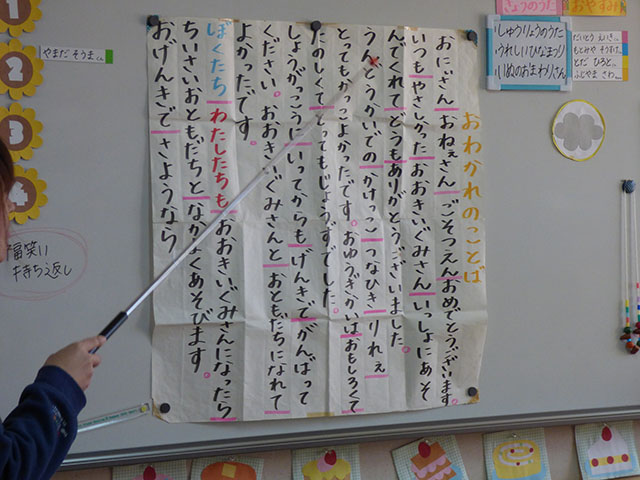 おわかれのことば
おにぃさん おねぇさん ごそつえんおめでとうございます。
いつもやさしかったおおきいぐみさんいっしょにあそ
んでくれてどうもありがとうございました。
うんどうかいでのかけっこ つなひき りれぇ
とってもかっこよかったです。おゆうぎかいはおもしろくて
たのしくて とってもじょうずでした。
しょうがっこうにいってからもげんきでがんばって
ください。おおきいぐみさんと おともだちになれて
よかったです。
ぼくたち わたしたちも おおきいぐみさんになったら
ちいさいおともだちと なかよくあそびます。
おげんきで さようなら
1
2
3
4
やまだ そうまくん
福笑い
持ち返し
しゅうりょうのうた
うれしいひなまつり
いぬのおまわりさん
おやすみ